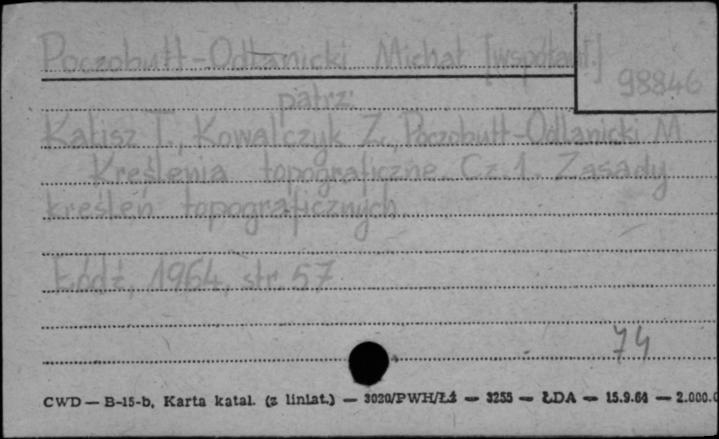 Poczobutt-Odlanicki Michał [współaut.]
98846
patrz:
Kalisz T., Kowalczyk Z., Poczobutt-Odlanicki M.
Kreślenia topograficzne. Cz. 1. Zasady
kreśleń topograficznych.
Łódź, 1964, str. 57
74
CWD — B-15-b, Karta katal. (z liniat.) — 3020/PWH/Łż — 3255 — ŁDA — 15.9.64 — 2.000.0